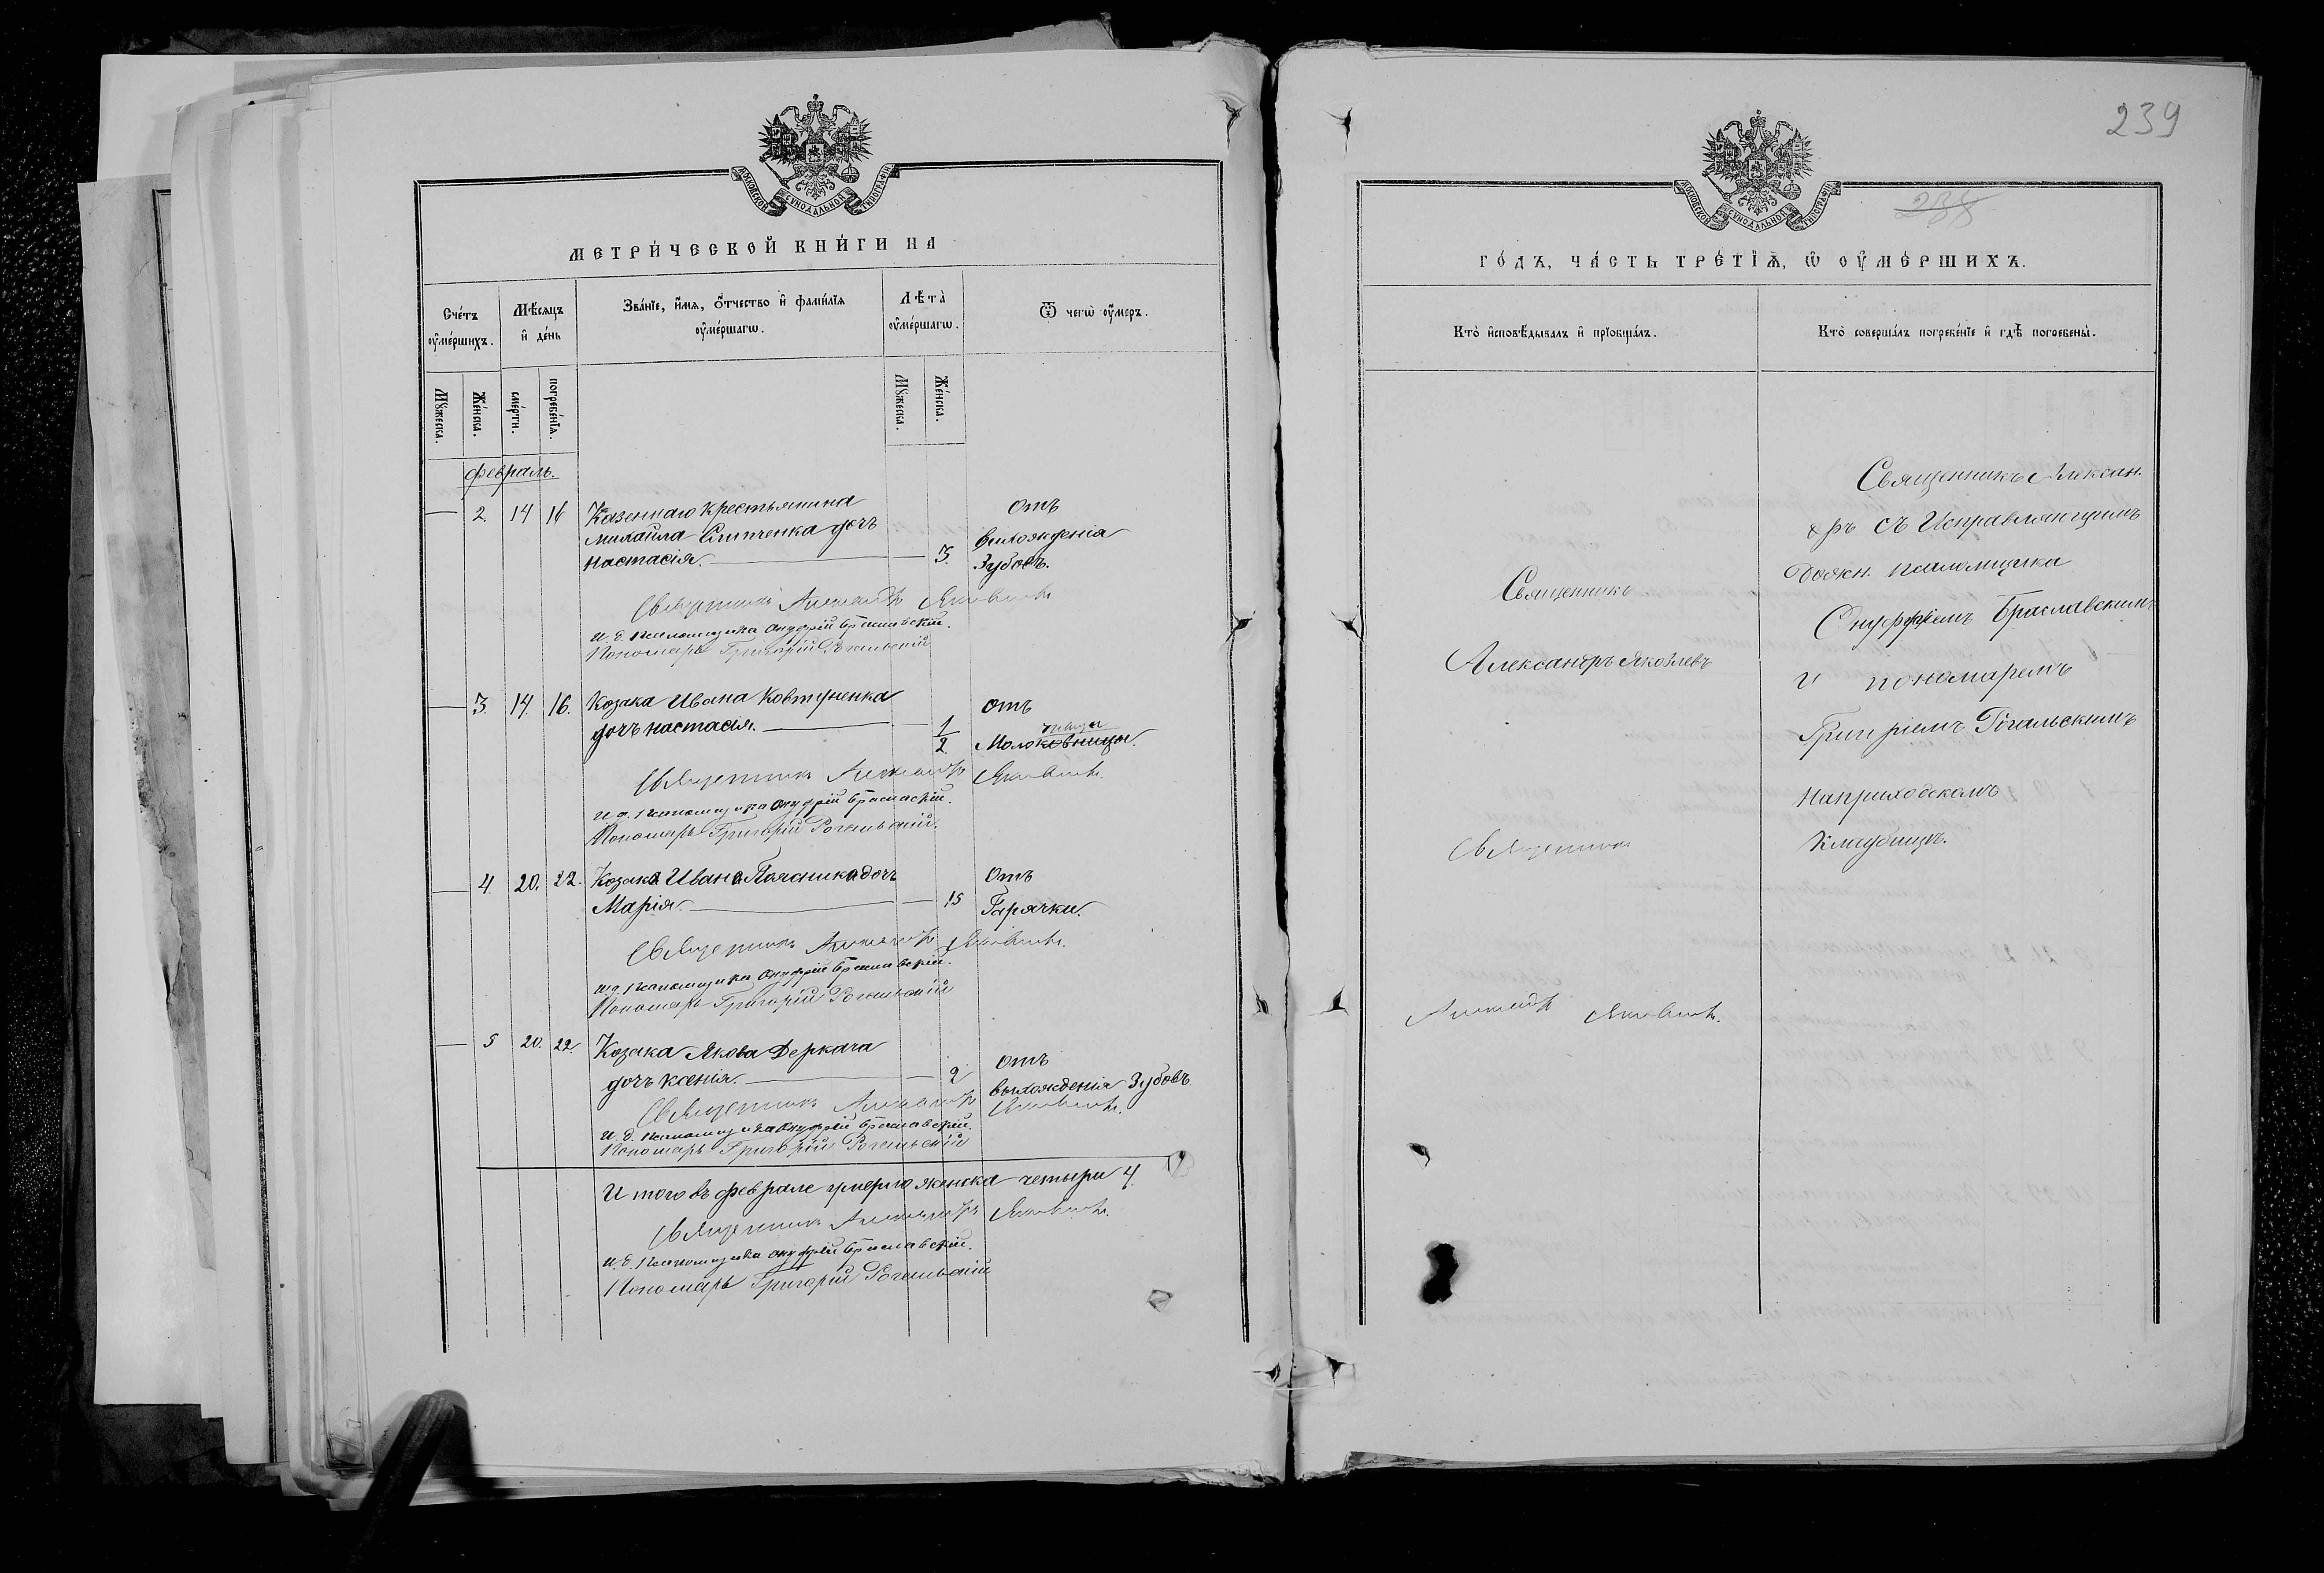 МОСКОВСКОЙ СѴНОДАЛЬНОЙ ТИПОГРАФІИ
МЕТРИ́ЧЕСКОЙ КНИ́ГИ НА
Сче́тъ оу҆ме́ршихъ.
Мѣ́сяцъ и҆ де́нь
Зва́нїе, и҆́мѧ, ѻ҆́тчество и҆ фами́лїѧ оу҆ме́ршагѡ.
Лѣ́та̀ оу҆ме́ршагѡ.
Ѿ чегѡ̀ оу҆́меръ.
Мꙋ́жеска.
Же́нска.
сме́рти.
погребе́нїѧ.
Мꙋ́жеска.
Же́нска.
Февраль.
2. 14 16 Казеннаго крестьянина отъ
Михаила Слипченка дочь вихожденія
Настасія. 3. Зубовъ.
Священникъ Александръ Яковлевъ
и. д. псаломщика Онуфрій Браславскій.
Пономарь Григорій Рогальскій
3. 14. 16. Козака Ивана Ковтуненка отъ
дочь Настасія. 1/2 Молоковницы.
Священникъ Александръ Яковлевъ.
и. д. псаломщика Онуфрій Браславскій.
Пономарь Григорій Рогальскій.
4. 20. 22. Козака Ивана Поясника дочь отъ
Марія. 15 Гарячки.
Священникъ Александръ Яковлевъ.
и. д. псаломщика Онуфрій Браславскій.
Пономарь Григорій Рогальскій
5 20. 22. Козака Якова Деркача отъ
дочь Ксенія. 2 вихожденія Зубовъ.
Священникъ Александръ Яковлевъ.
и. д. псаломщика Онуфрій Браславскій.
Пономарь Григорій Рогальскій
Итого въ феврале умерло женска четыри 4.
Священникъ Александръ Яковлевъ.
и. д. псаломщика Онуфрій Браславскій.
Пономарь Григорій Рогальскій
239
238
МОСКОВСКОЙ СѴНОДАЛЬНОЙ ТИПОГРАФІИ
ГО́ДЪ, ЧА́СТЬ ТРЕ́ТЇѦ, Ѡ҆ ОУ҆МЕ́РШИХЪ.
Кто̀ и҆сповѣ́дывалъ и҆ прїобща́лъ.
Кто̀ соверша́лъ погребе́нїе и҆ гдѣ̀ погребены̀.
Священникъ
Александръ Яковлевъ
Священникъ
Александръ Яковлевъ.
Священникъ Алексан.
дръ съ Исправляющимъ
Должн. псаломщика
Онуфріемъ Браславскимъ
и пономаремъ
Григоріемъ Рогальскимъ
На приходскомъ
Кладбищѣ.